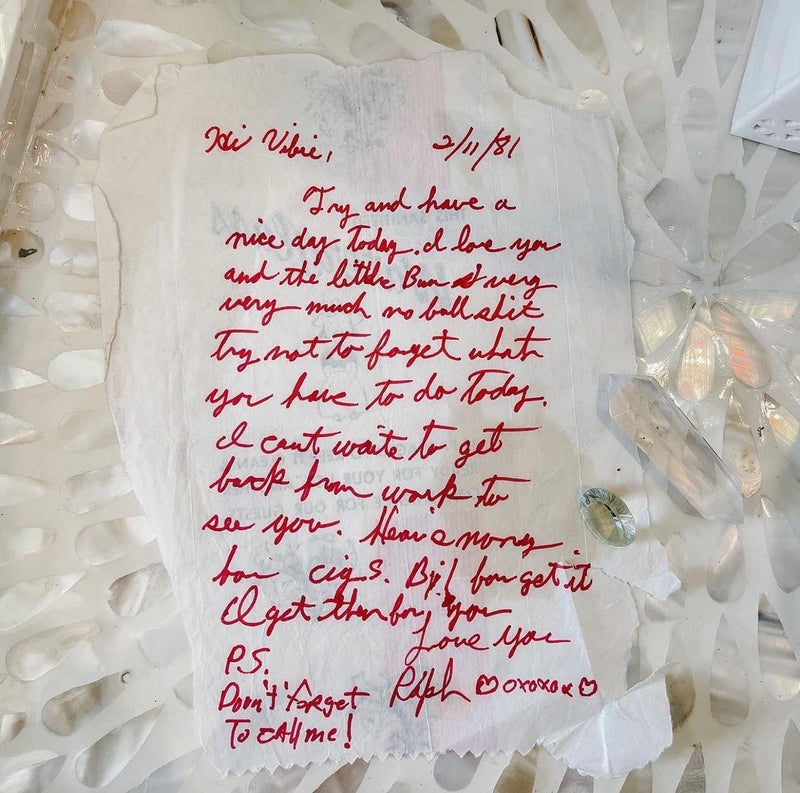 Hi Vibie, 2/11/81
Try and have a
nice day today. I love you
and the little Bun very
very much no bull shit
try not to forget what
you have to do today.
I cant wait to get
back from work to
see you. money
for cigs. forget it
I get them for you
Love you
P.S. Ralph oxoxox
Doon't forget
To call me!
THIS SANITIZED
FOR YOUR
FOR OUR GUESTS